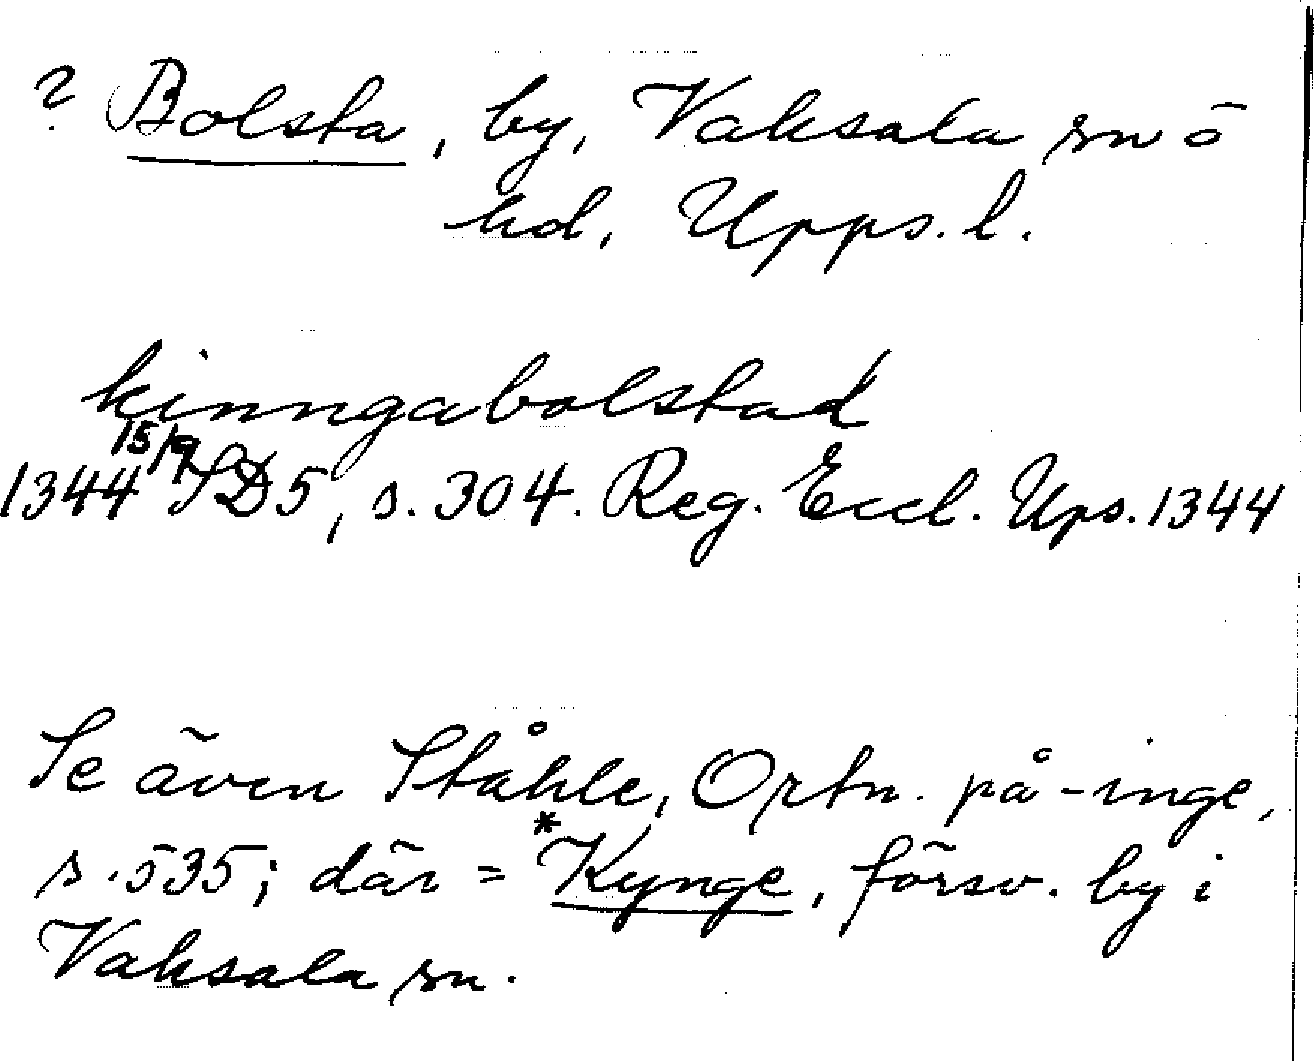 ? Bolsta, by, Vaksala sn ō
hd, Upps. l.
kinngabolstad
1344 15/9 SD5, s. 304. Reg. Eccl. Ups. 1344
Se även Ståhle, Ortn. på -inge,
s. 535; där = *Kynge, försv. by i
Vaksala sn.